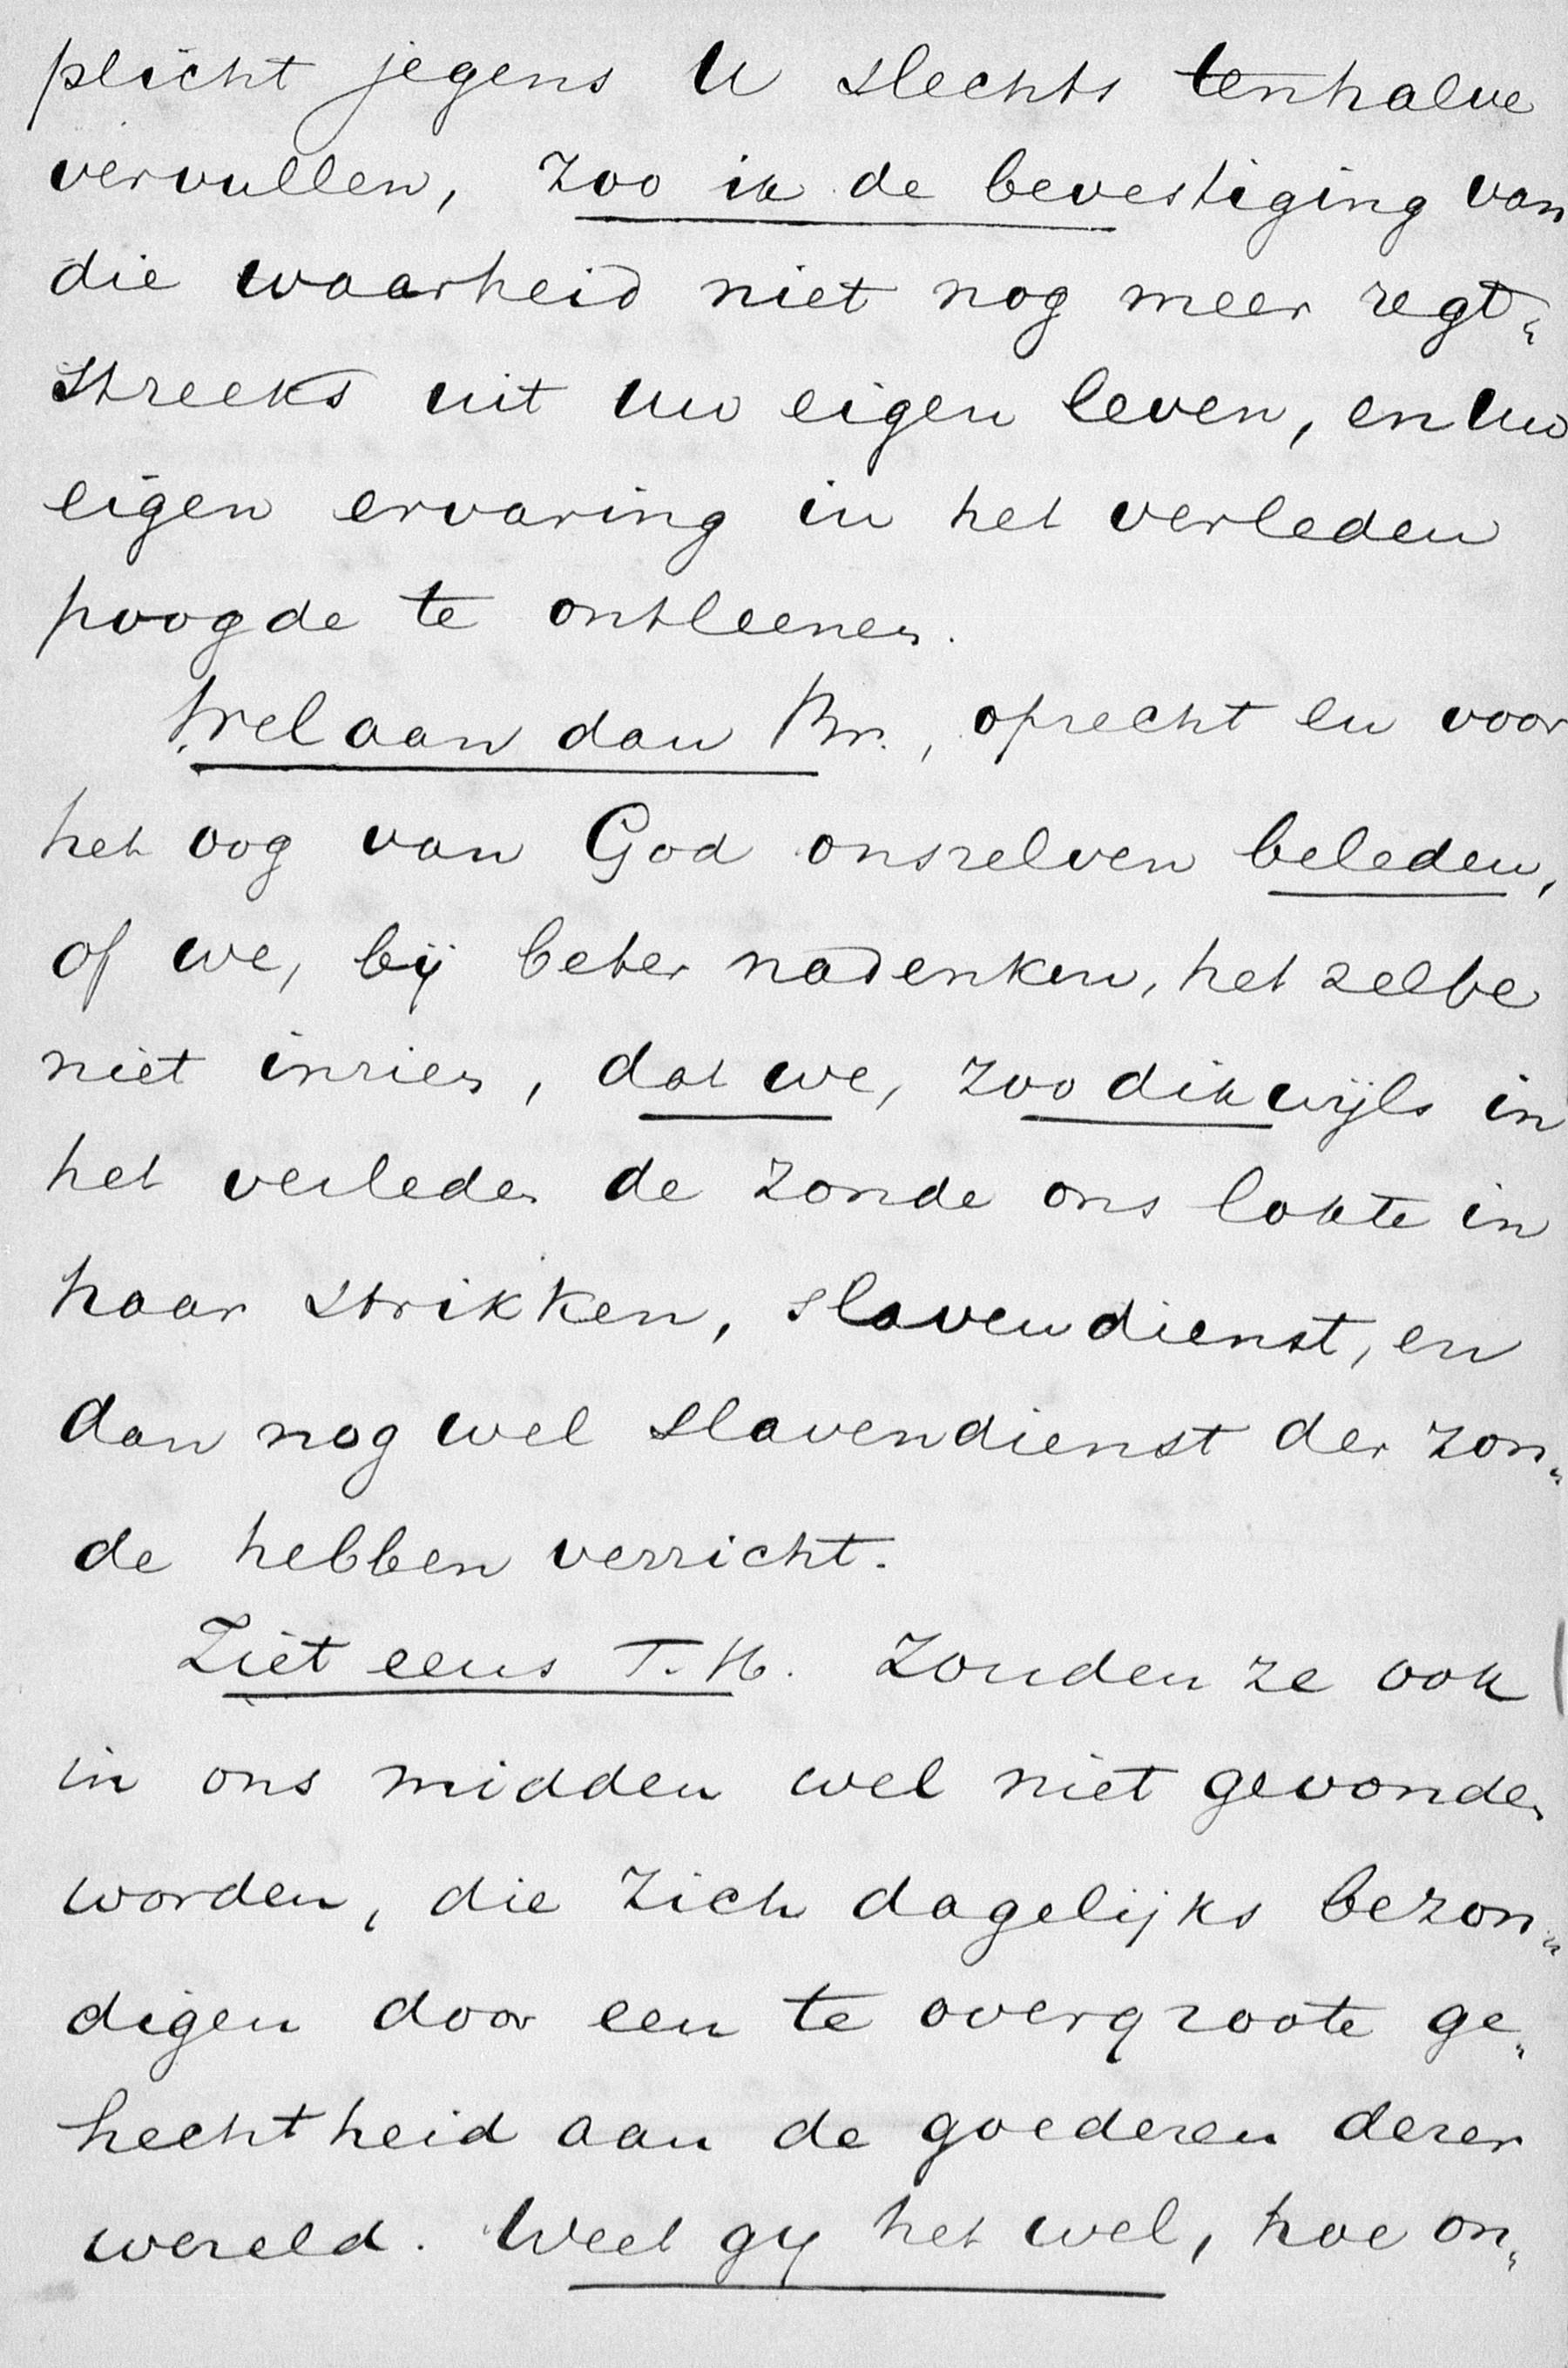 plicht jegens U slechts tenhalve
vervullen, zoo ik de bevestiging van
die waarheid niet nog meer regt„
streeks uit uw eigen leven, en uw
eigen ervaring in het verleden
poogde te ontleenen.
Welaan dan Br., oprecht en voor
het oog van God onszelven beleden,
of we, bij beter nadenken, het zelve
niet inzien, dat we, zoo dikwijls in
het verleden de zonde ons lokte in
haar strikken, slavendienst, en
dan nog wel slavendienst der zon„
de hebben verricht.
Ziet eens T. H. Zouden ze ook
in ons midden wel niet gevonden
worden, die zich dagelijks bezon„
digen door een te overgroote ge„
hechtheid aan de goederen dezer
wereld. Weet gy het wel, hoe on„